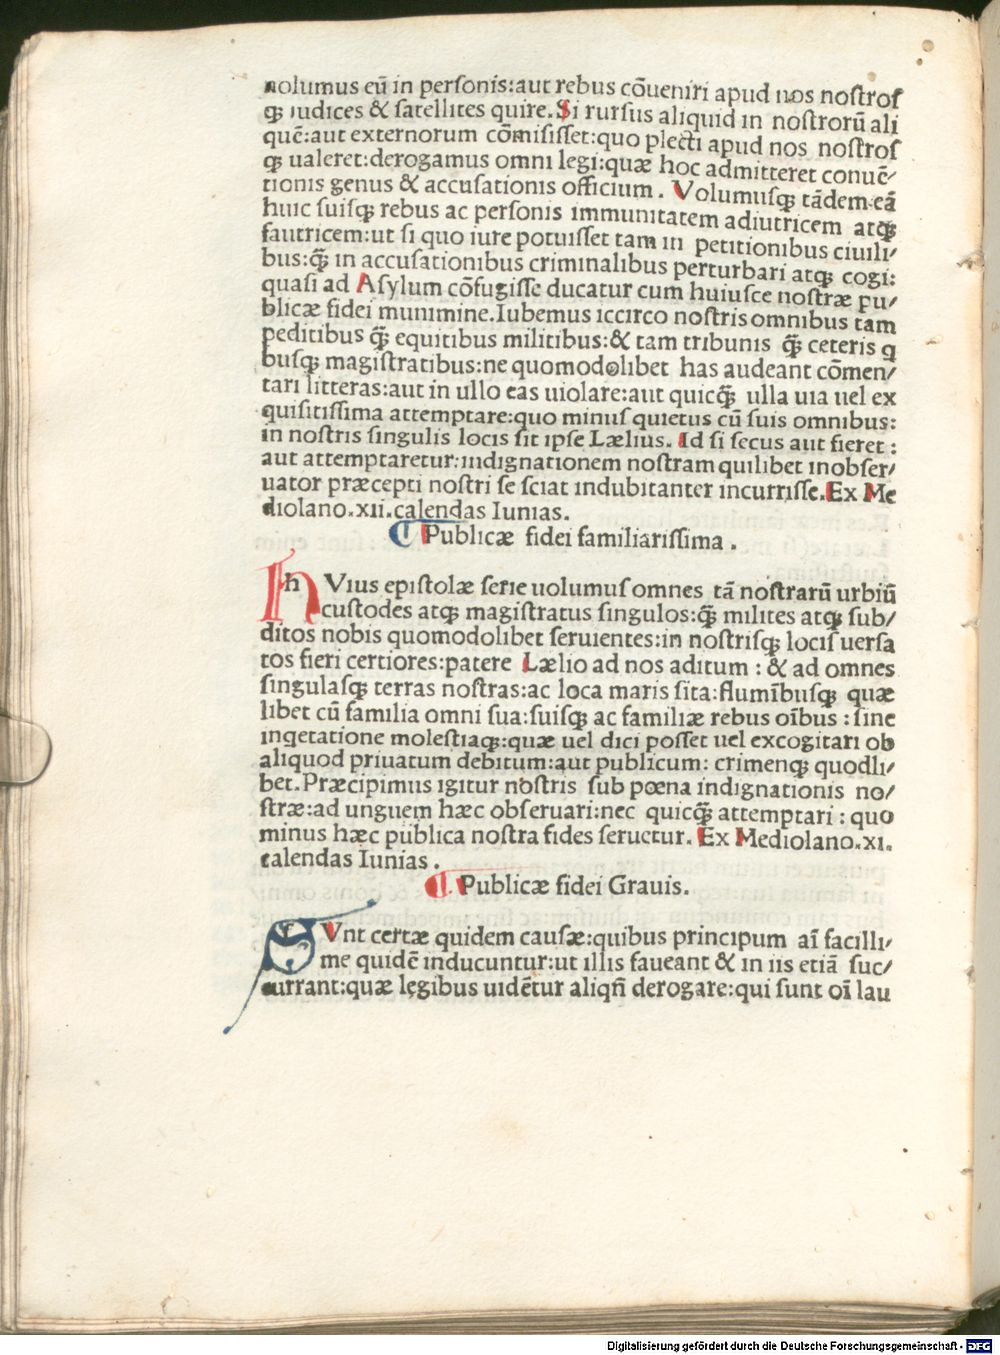 nolumus eū in personis:aut rebus cōueniri apud nos nostros
ꝗ iudices & satellites quire. Si rursus aliquid in nostrorū ali
quē:aut externorum cōmisisset:quo plecti apud nos nostros
ꝗ ualeret:derogamus omni legi:quæ hoc admitteret conuē/
tionis genus & accusationis officium. Volumusꝗ tādem eā
huic suisꝗ rebus ac personis immunitatem adiutricem atꝗ
fautricem:ut si quo iure potuisset tam in petitionibus ciuili/
bus:ꝗ̃ in accusationibus criminalibus perturbari atꝗ cogi:
quasi ad Asylum cōfugisse ducatur cum huiusce nostræ pu/
blicæ fidei munimine. Iubemus iccirco nostris omnibus tam
peditibus ꝗ̃ equitibus militibus:& tam tribunis ꝗ̃ ceteris q
busꝗ magistratibus:ne quomodolibet has audeant cōmen/
tari litteras:aut in ullo eas uiolare:aut quicꝗ̃ ulla uia uel ex
quisitissima attemptare:quo minus quietus cū suis omnibus:
in nostris singulis locis sit ipse Lælius. Id si secus aut fieret:
aut attemptaretur:indignationem nostram quilibet inobser/
uator præcepti nostri se sciat indubitanter incurrisse. Ex Me
diolano.xii.calendas Iunias.
¶ Publicæ fidei familiarissima.
h VIus epistolæ serie uolumus omnes tā nostrarū urbiū
custodes atꝗ magistratus singulos:ꝗ̃ milites atꝗ sub/
ditos nobis quomodolibet seruientes:in nostrisꝗ locis uersa
tos fieri certiores:patere Lælio ad nos aditum:& ad omnes
singulasꝗ terras nostras:ac loca maris sita:flumībusꝗ quæ
libet cū familia omni sua:suisꝗ ac familiæ rebus oībus:sine
ingetatione molestiaꝗ:quæ uel dici posset uel excogitari ob
aliquod priuatum debitum:aut publicum:crimenꝗ quodli/
bet. Præcipimus igitur nostris sub pœna indignationis no/
stræ:ad unguem hæc obseruari:nec quicꝗ̃ attemptari:quo
minus hæc publica nostra fides seruetur. Ex Mediolano.xi.
calendas Iunias.
¶ Publicæ fidei Grauis.
s Vnt certæ quidem causæ:quibus principum aī facilli/
me quidē inducuntur:ut illis faueant & in iis etiā suc/
currant:quæ legibus uidētur aliqñ derogare:qui sunt oī lau
Digitalisierung gefördert durch die Deutsche Forschungsgemeinschaft - DFG